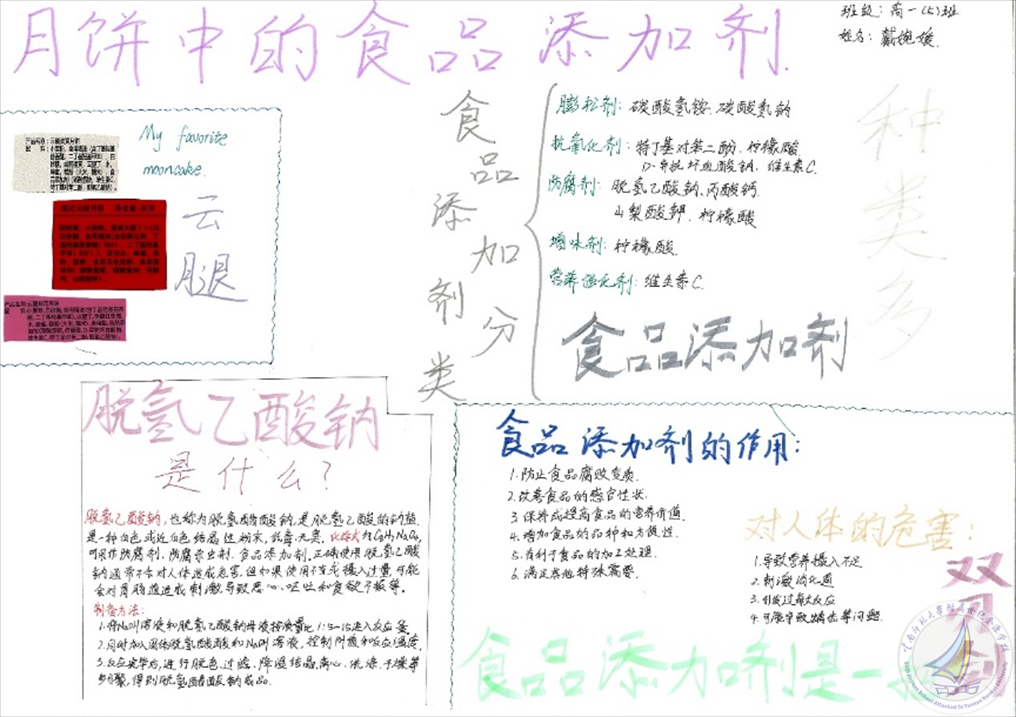 月饼中的食品添加剂.
班级: 高一(5)班
姓名: 戴婉媛.
My favorite
mooncake.
云
腿
食品添加剂分类
膨松剂: 碳酸氢铵、碳酸氢钠
抗氧化剂: 特丁基对苯二酚、柠檬酸
D-异抗坏血酸钠、维生素C.
防腐剂: 脱氢乙酸钠、丙酸钙.
山梨酸钾、柠檬酸
增味剂: 柠檬酸.
营养强化剂: 维生素C.
种类多
食品添加剂
脱氢乙酸钠
是什么?
脱氢乙酸钠, 也称为脱氢醋酸钠, 是脱氢乙酸的钠盐.
是一种白色或近白色结晶性粉末, 低毒无臭. 化学式为C8H7NaO4,
可用作防腐剂, 防腐杀虫剂. 食品添加剂. 正确使用脱氢乙酸
钠通常不会对人体造成危害. 但如果使用不当或摄入过量, 可能
会对胃肠道造成刺激, 导致恶心、呕吐和食欲不振等.
制备方法:
1. 将NaOH溶液和脱氢乙酸钠母液按质量比1:5~15进入反应釜
2. 同时加入固体脱氢醋酸和NaOH溶液, 控制
3. 反应完毕后, 进行脱色、过滤、降温结晶, 离心、洗涤、干燥等
步骤, 得到脱氢醋酸钠成品.
食品添加剂的作用:
1. 防止食品腐败变质.
2. 改善食品的感官性状.
3. 保持或提高食品的营养价值.
4. 增加食品的品种和方便性.
5. 有利于食品的加工处理.
6. 满足其他特殊需要.
对人体的危害:
1. 导致营养摄入不足
2. 刺激消化道
3. 引发过敏反应
4. 可能导致癌症等问题.
食品添加剂是一
双刃剑